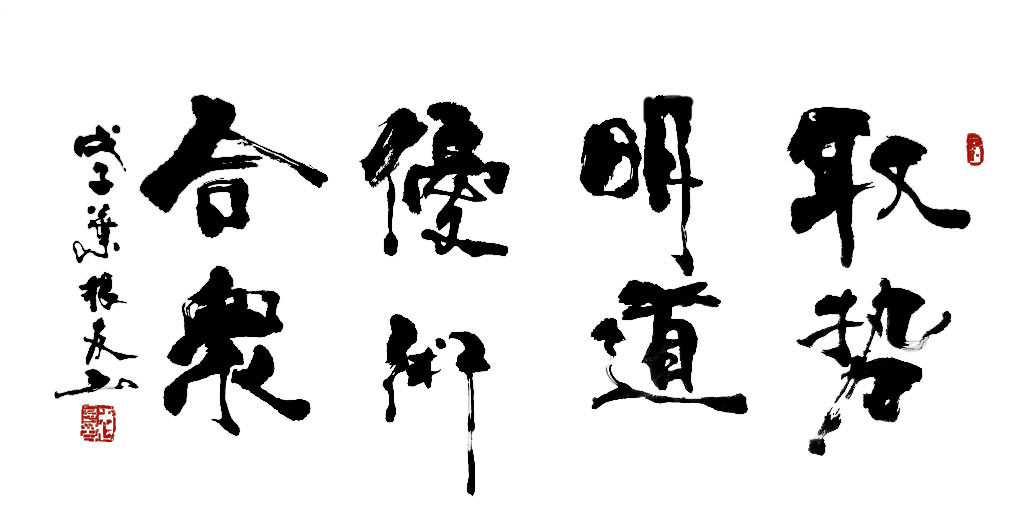 取势
明道
優術
合衆
戊子葉根友书